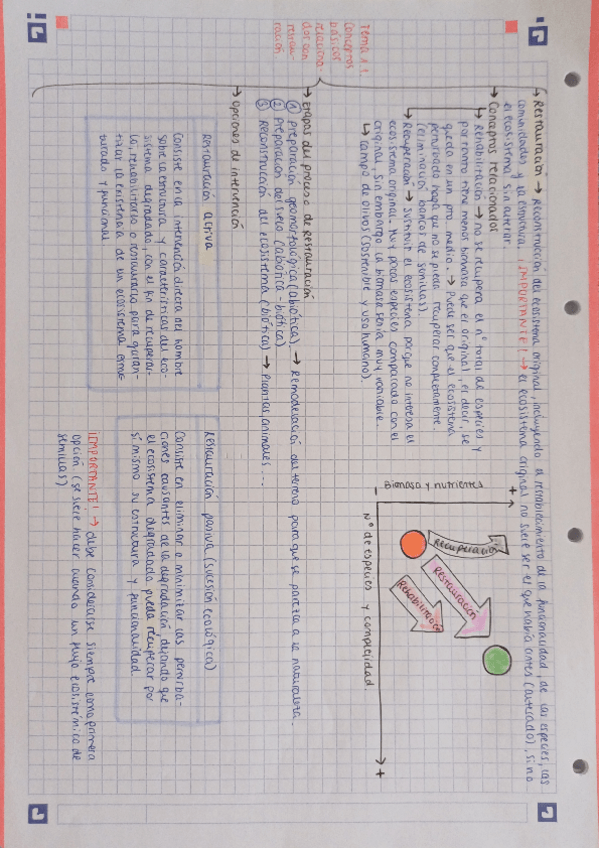 Tema 1.1.
Conceptos
básicos
relaciona-
dos con
restau-
ración
→ Restauración → Reconstrucción del ecosistema original, incluyendo el restablecimiento de la funcionalidad, de las especies, las
comunidades y la estructura. ¡IMPORTANTE! → el ecosistema original no suele ser el que había antes (alterado), sino
el ecosistema sin alterar.
→ Conceptos relacionados
→ Rehabilitación → no se recupera el nº total de especies y
por tanto tiene menos biomasa que el original, es decir, se
queda en un pto medio. → Puede ser que el ecosistema
perturbado haga que no se pueda recuperar completamente.
(eliminación bancos de semillas).
→ Recuperación → sustituir el ecosistema porque no interesa el
ecosistema original. Muy pocas especies comparado con el
original, sin embargo la biomasa sería muy variable.
↳ Campo de olivos (sostenible y uso humano).
+
Biomasa y nutrientes
-
Recuperación
Restauración
Rehabilitación
Nº de especies y complejidad
+
→ Etapas del proceso de restauración
① Preparación geomorfológica (abiótica). → Remodelación del terreno para que se parezca a la naturaleza.
② Preparación del suelo (abiótica - biótica)
③ Reconstrucción del ecosistema (biótica) → Plantas, animales...
→ Opciones de intervención
Restauración activa
Consiste en la intervención directa del hombre
sobre la estructura y características del eco-
sistema degradado, con el fin de recuperar-
lo, rehabilitarlo o restaurarlo para garan-
tizar la existencia de un ecosistema estruc-
turado y funcional
Restauración pasiva (sucesión ecológica)
Consiste en eliminar o minimizar las perturba-
ciones causantes de la degradación, dejando que
el ecosistema degradado pueda recuperar por
sí mismo su estructura y funcionalidad
¡IMPORTANTE! → debe considerarse siempre como primera
opción (se suele hacer cuando un flujo ecosistémico de
semillas)